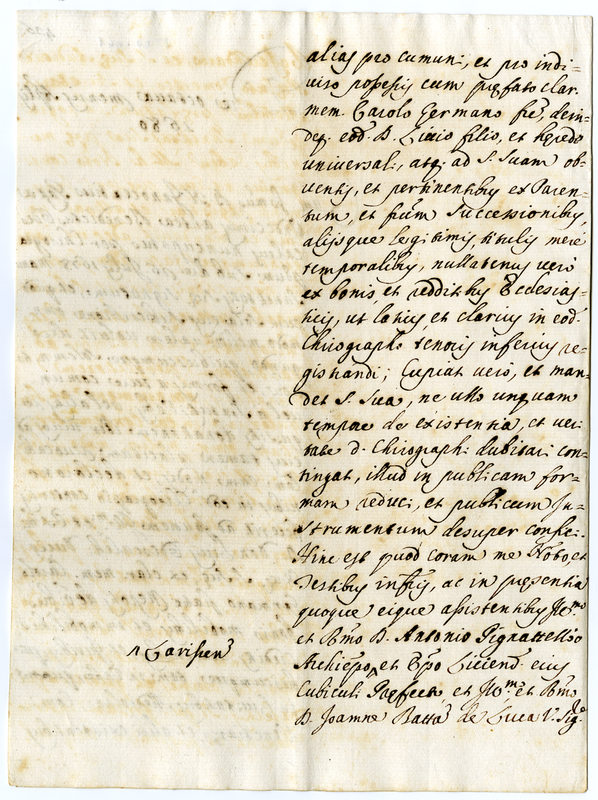 alias pro cumuni, et pro indi=
viso possessis cum præfato clar.
mem. Carolo Germano frẽ, dein=
deq. eod. D. Livio filio, et hærede
universali, atq. ad S. Suam ob=
ventis, et pertinentibus ex Paren=
tum, et frũm successionibus,
alijsque legitimis titulis mere
temporalibus, nullatenus vero
ex bonis, et redditibus Ecclesias=
ticis, ut latius, et clarius in eod.
Chirographo tenoris inferius re=
gistrandi; Cupiat vero, et man=
det S. Sua, ne ullo unquam
tempore de existentia, et veri=
tate d. Chirographi dubitari con=
tingat, illud in publicam for=
mam reduci, et publicum In=
strumentum desuper confici.
Hinc est quod coram me Notõ, et
Testibus infrĩs, ac in præsentia
quoque eique assistentibus Illmo
et Rmo D. Antonio Pignattellio
Archiepõ, et Epõ Liciens. eius
^ Larissen
Cubiculi Præfecto et Illm̃. et Rmo
D. Joanne Battã de Luca V. Sig.e